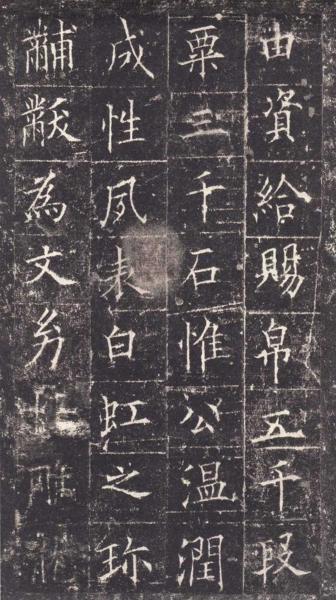 由資給賜帛五千段
粟三千石惟公溫潤
成性夙表白虹之珎
黼黻為文幼